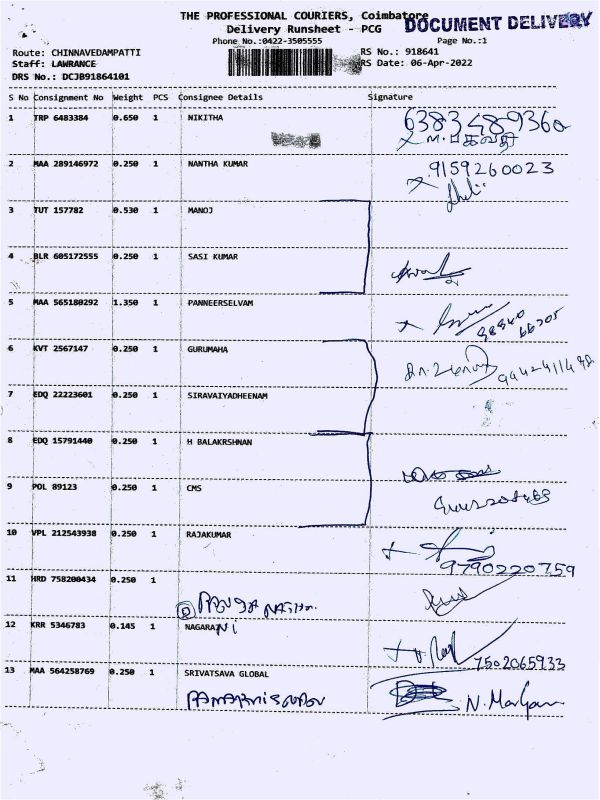 THE PROFESSIONAL COURIERS, Coimbatore
DOCUMENT DELIVERY
Delivery Runsheet - PCG
Phone No.:0422-3505555 Page No.:1
Route: CHINNAVEDAMPATTI RS No.: 918641
Staff: LAWRANCE RS Date: 06-Apr-2022
DRS No.: DCJB91864101
S No Consignment No Weight PCS Consignee Details Signature
1 TRP 6483384 0.650 1 NIKITHA
2 MAA 289146972 0.250 1 NANTHA KUMAR 9159260023
3 TUT 157782 0.530 1 MANOJ
4 BLR 605172555 0.250 1 SASI KUMAR
5 MAA 565180292 1.350 1 PANNEERSELVAM
6 KVT 2567147 0.250 1 GURUMAHA
7 EDQ 22223601 0.250 1 SIRAVAIYADHEENAM
8 EDQ 15791440 0.250 1 H BALAKRSHNAN
9 POL 89123 0.250 1 CMS
10 VPL 212543938 0.250 1 RAJAKUMAR
9790220759
11 HRD 758200434 0.250 1
12 KRR 5346783 0.145 1 NAGARANI
7502065933
13 MAA 564258769 0.250 1 SRIVATSAVA GLOBAL